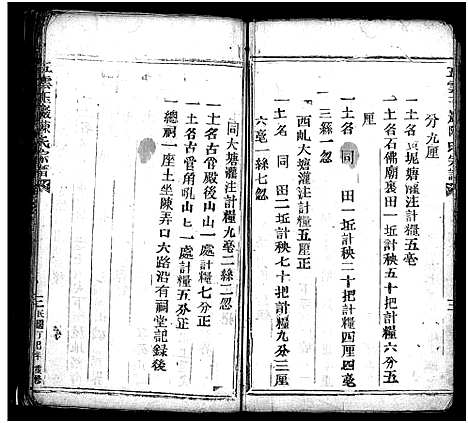 五雲玉巖陳氏宗譜
分九厘
一土名泥塘灌注計糧五毫
一土名石佛廟裏田一坵計秧五十把計糧六分五
厘
一土名同田一坵計秧二十把計糧四厘四毫
三絲一忽
西乢大塘灌注計糧五厘正
一土名同田二坵計秧七十把計糧九分三厘
六毫一絲七忽
同大塘灌注計糧九毫二絲二忽
一土名古管殿後山一處計糧七分正
一土名古管角乢山一處計糧五分正
一總祠一座土坐陳弄口大路沿有祠堂記錄後
五雲玉巖陳氏宗譜